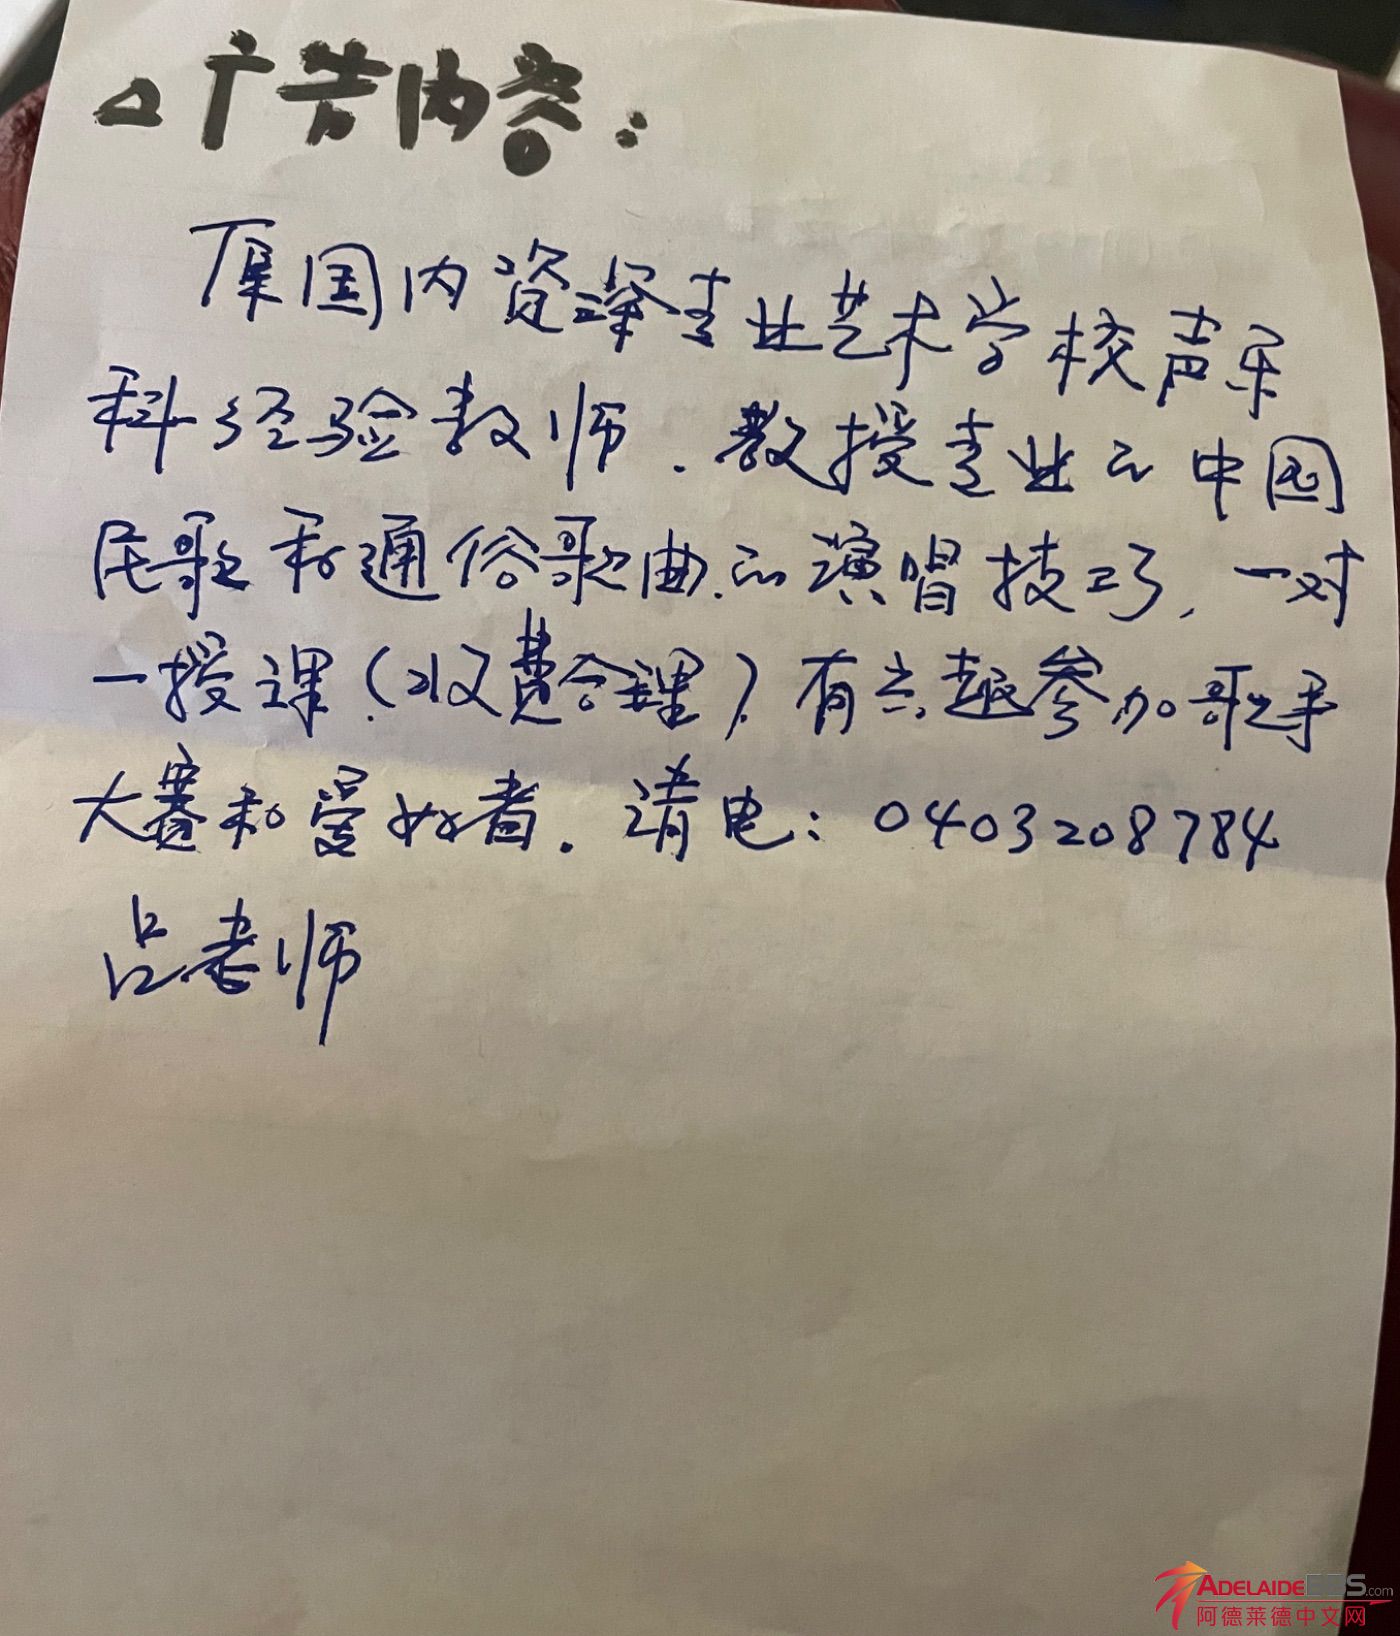 △广告内容：
原国内资深专业艺术学校声乐
科经验教师．教授专业的中国
民歌和通俗歌曲的演唱技巧，一对
一授课（收费合理）有兴趣参加歌手
大赛和爱好者．请电：0403208784
占老师
ADELAIDEBBS.com
阿德莱德中文网